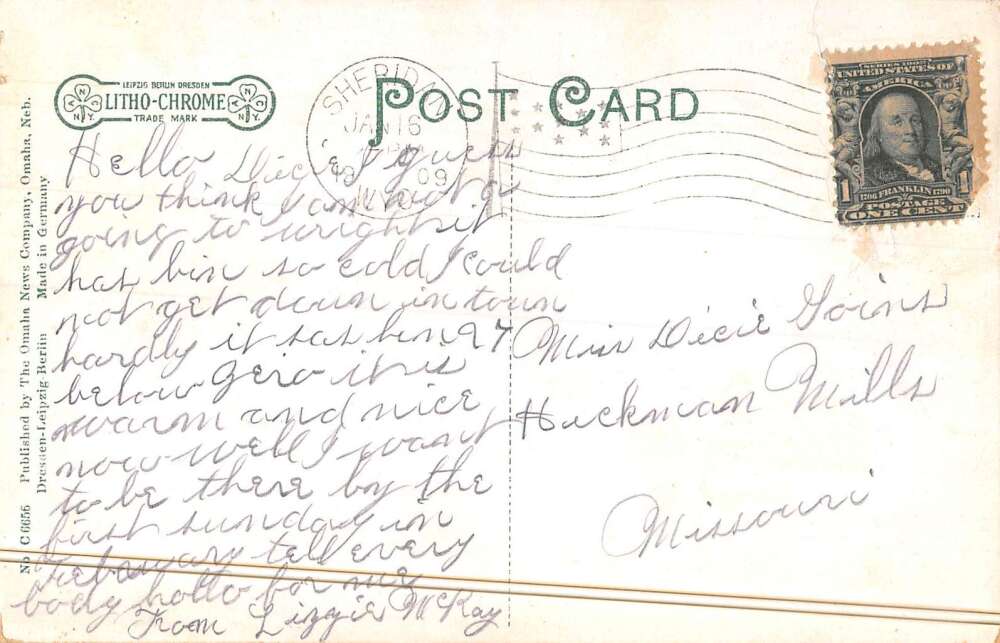 LEIPZIG BERLIN DRESDEN
LITHO-CHROME
TRADE MARK
N.Y. N.Y.
POST CARD
SHERIDAN
JAN 16
09
WYO
SERIES 1902
UNITED STATES OF
AMERICA
1706 FRANKLIN 1790
POSTAGE
1 1
ONE CENT
No C 6656 Published by The Omaha News Company, Omaha, Neb.
Dresden-Leipzig-Berlin Made in Germany
Hello Dicie I guess
you think I am not a
going to wright it
has bin so cold I could
not get down in town
hardly it has bin 27
below gero it is
warm and nice
now well I want
to be there by the
first sunday in
February tell every
body hollo for me
From Lizzie McKay
Miss Dicie Goins
Hickman Mills
Missouri